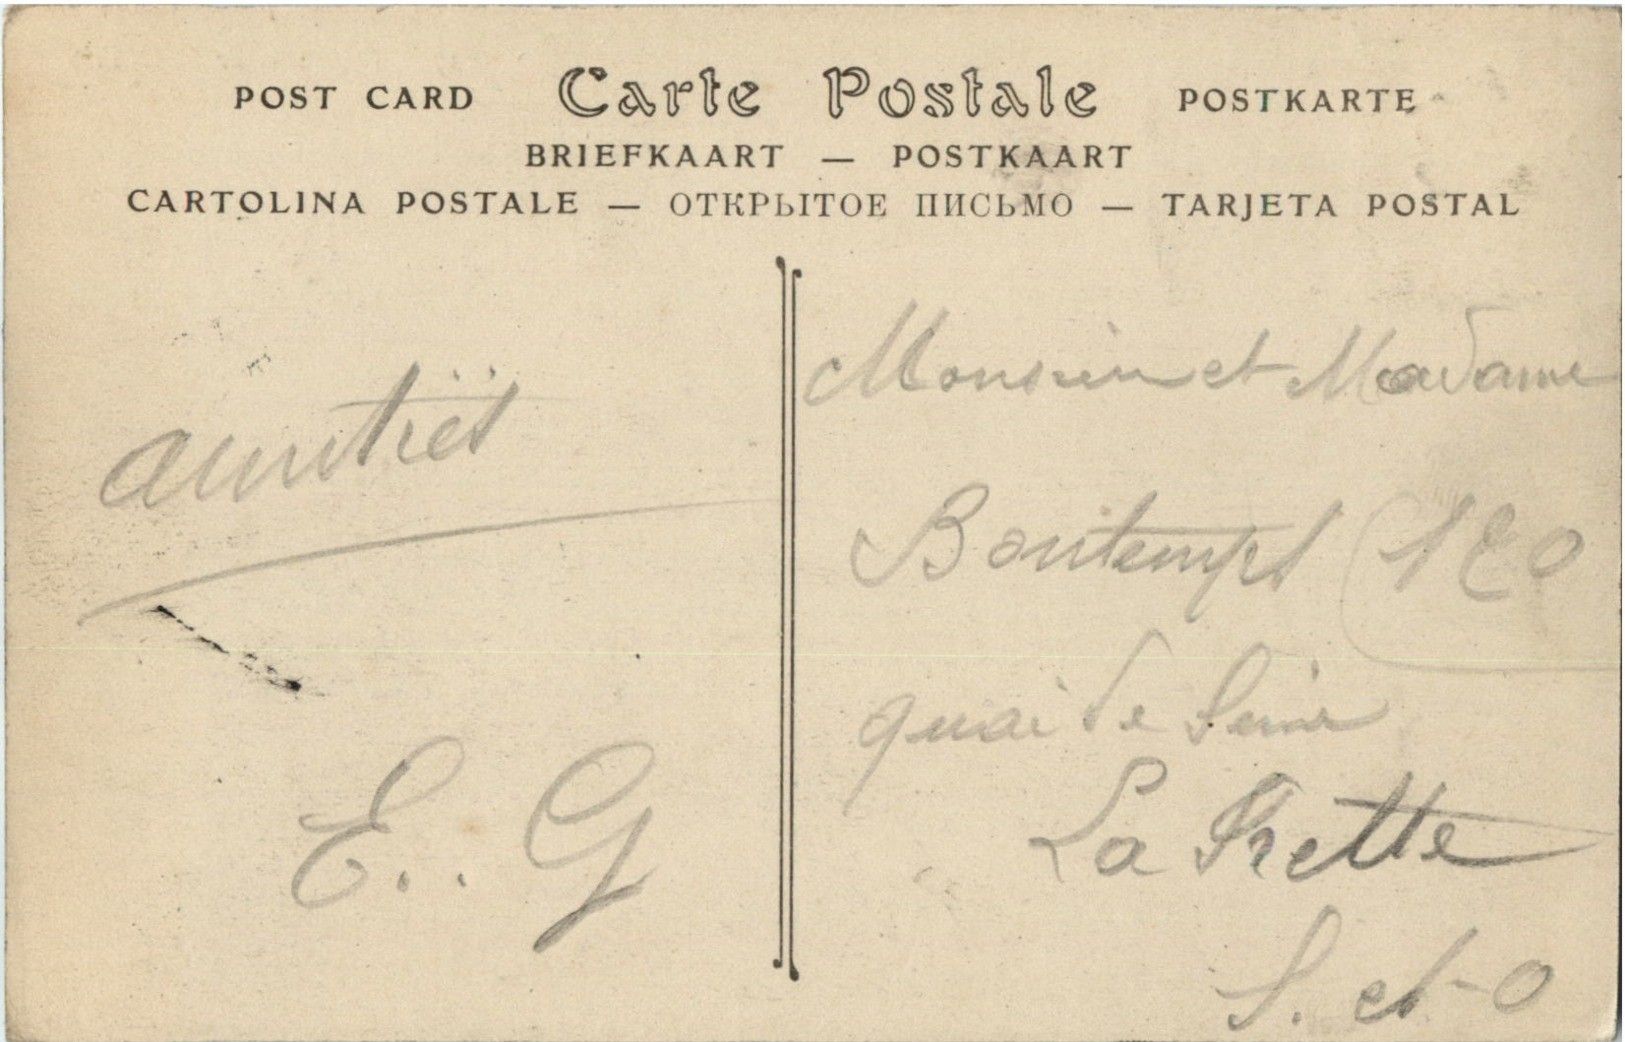 POST CARD Carte Postale POSTKARTE
BRIEFKAART — POSTKAART
CARTOLINA POSTALE — ОТКРЫТОЕ ПИСЬМО — TARJETA POSTAL
amitiés
E. . G
Monsieur et Madame
Bontemps
quai de Seine
La Frette
S. et-O